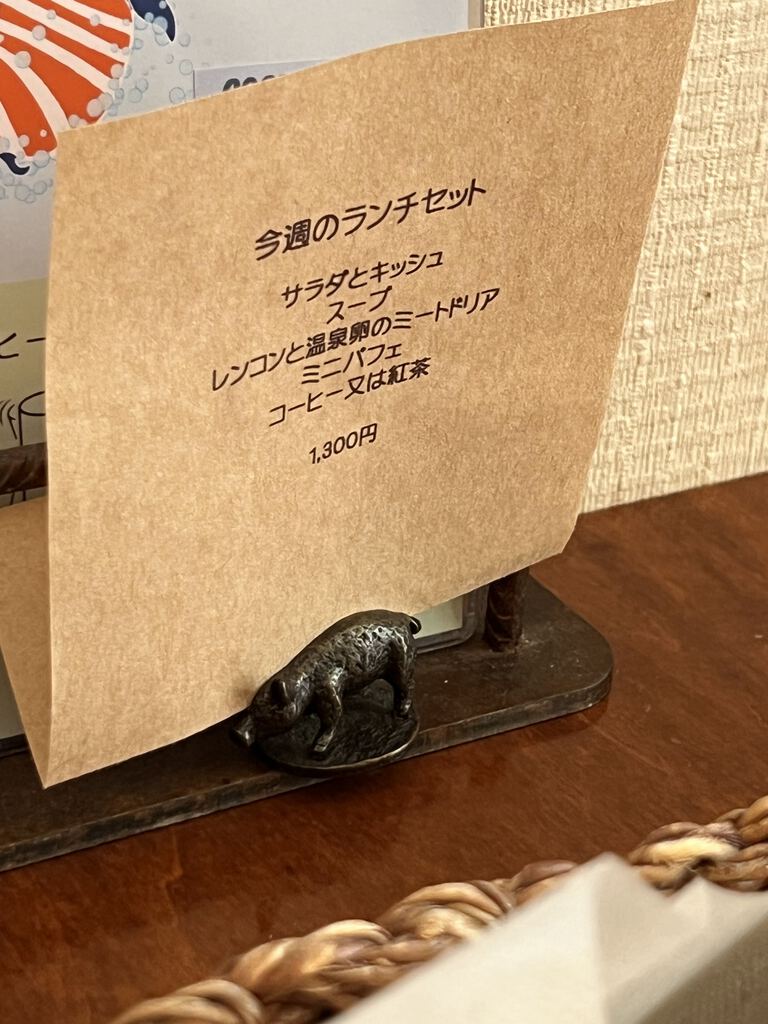 今週のランチセット
サラダとキッシュ
スープ
レンコンと温泉卵のミートドリア
ミニパフェ
コーヒー又は紅茶
1,300円
ヒー